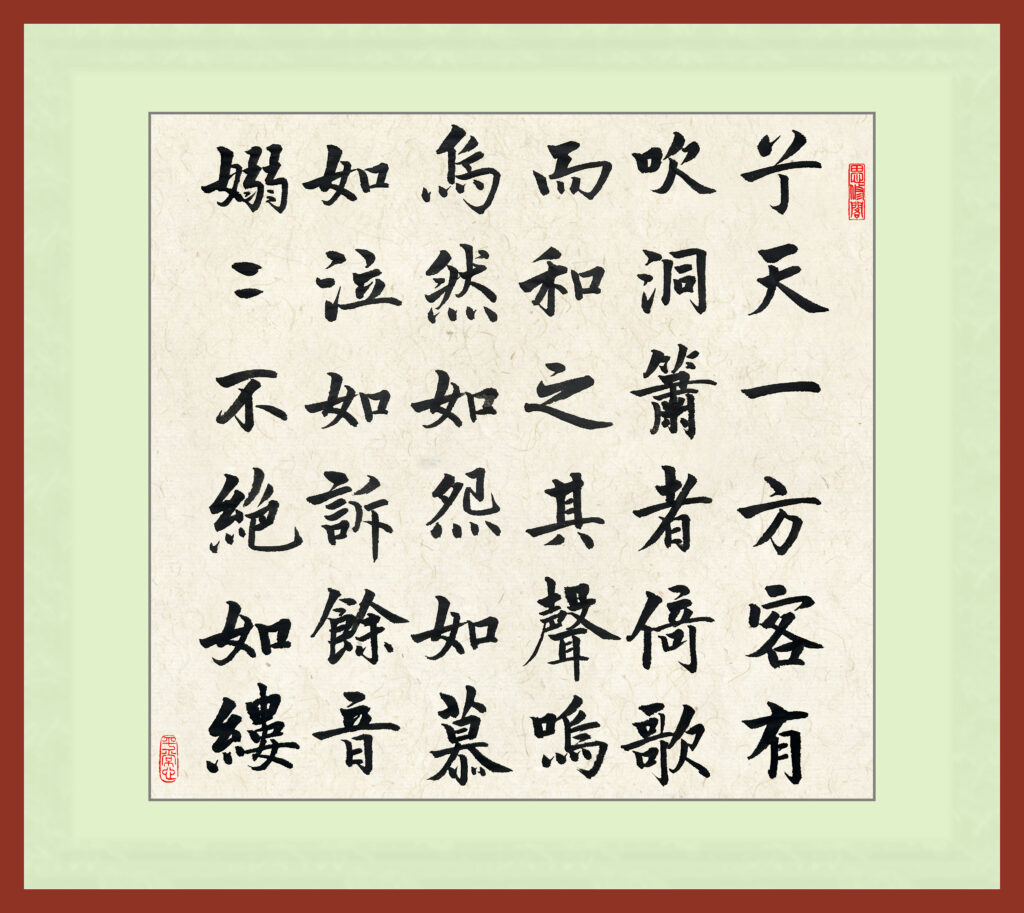 兮天一方客有
吹洞簫者倚歌
而和之其聲嗚
烏然如怨如慕
如泣如訴餘音
嫋〻不絕如縷